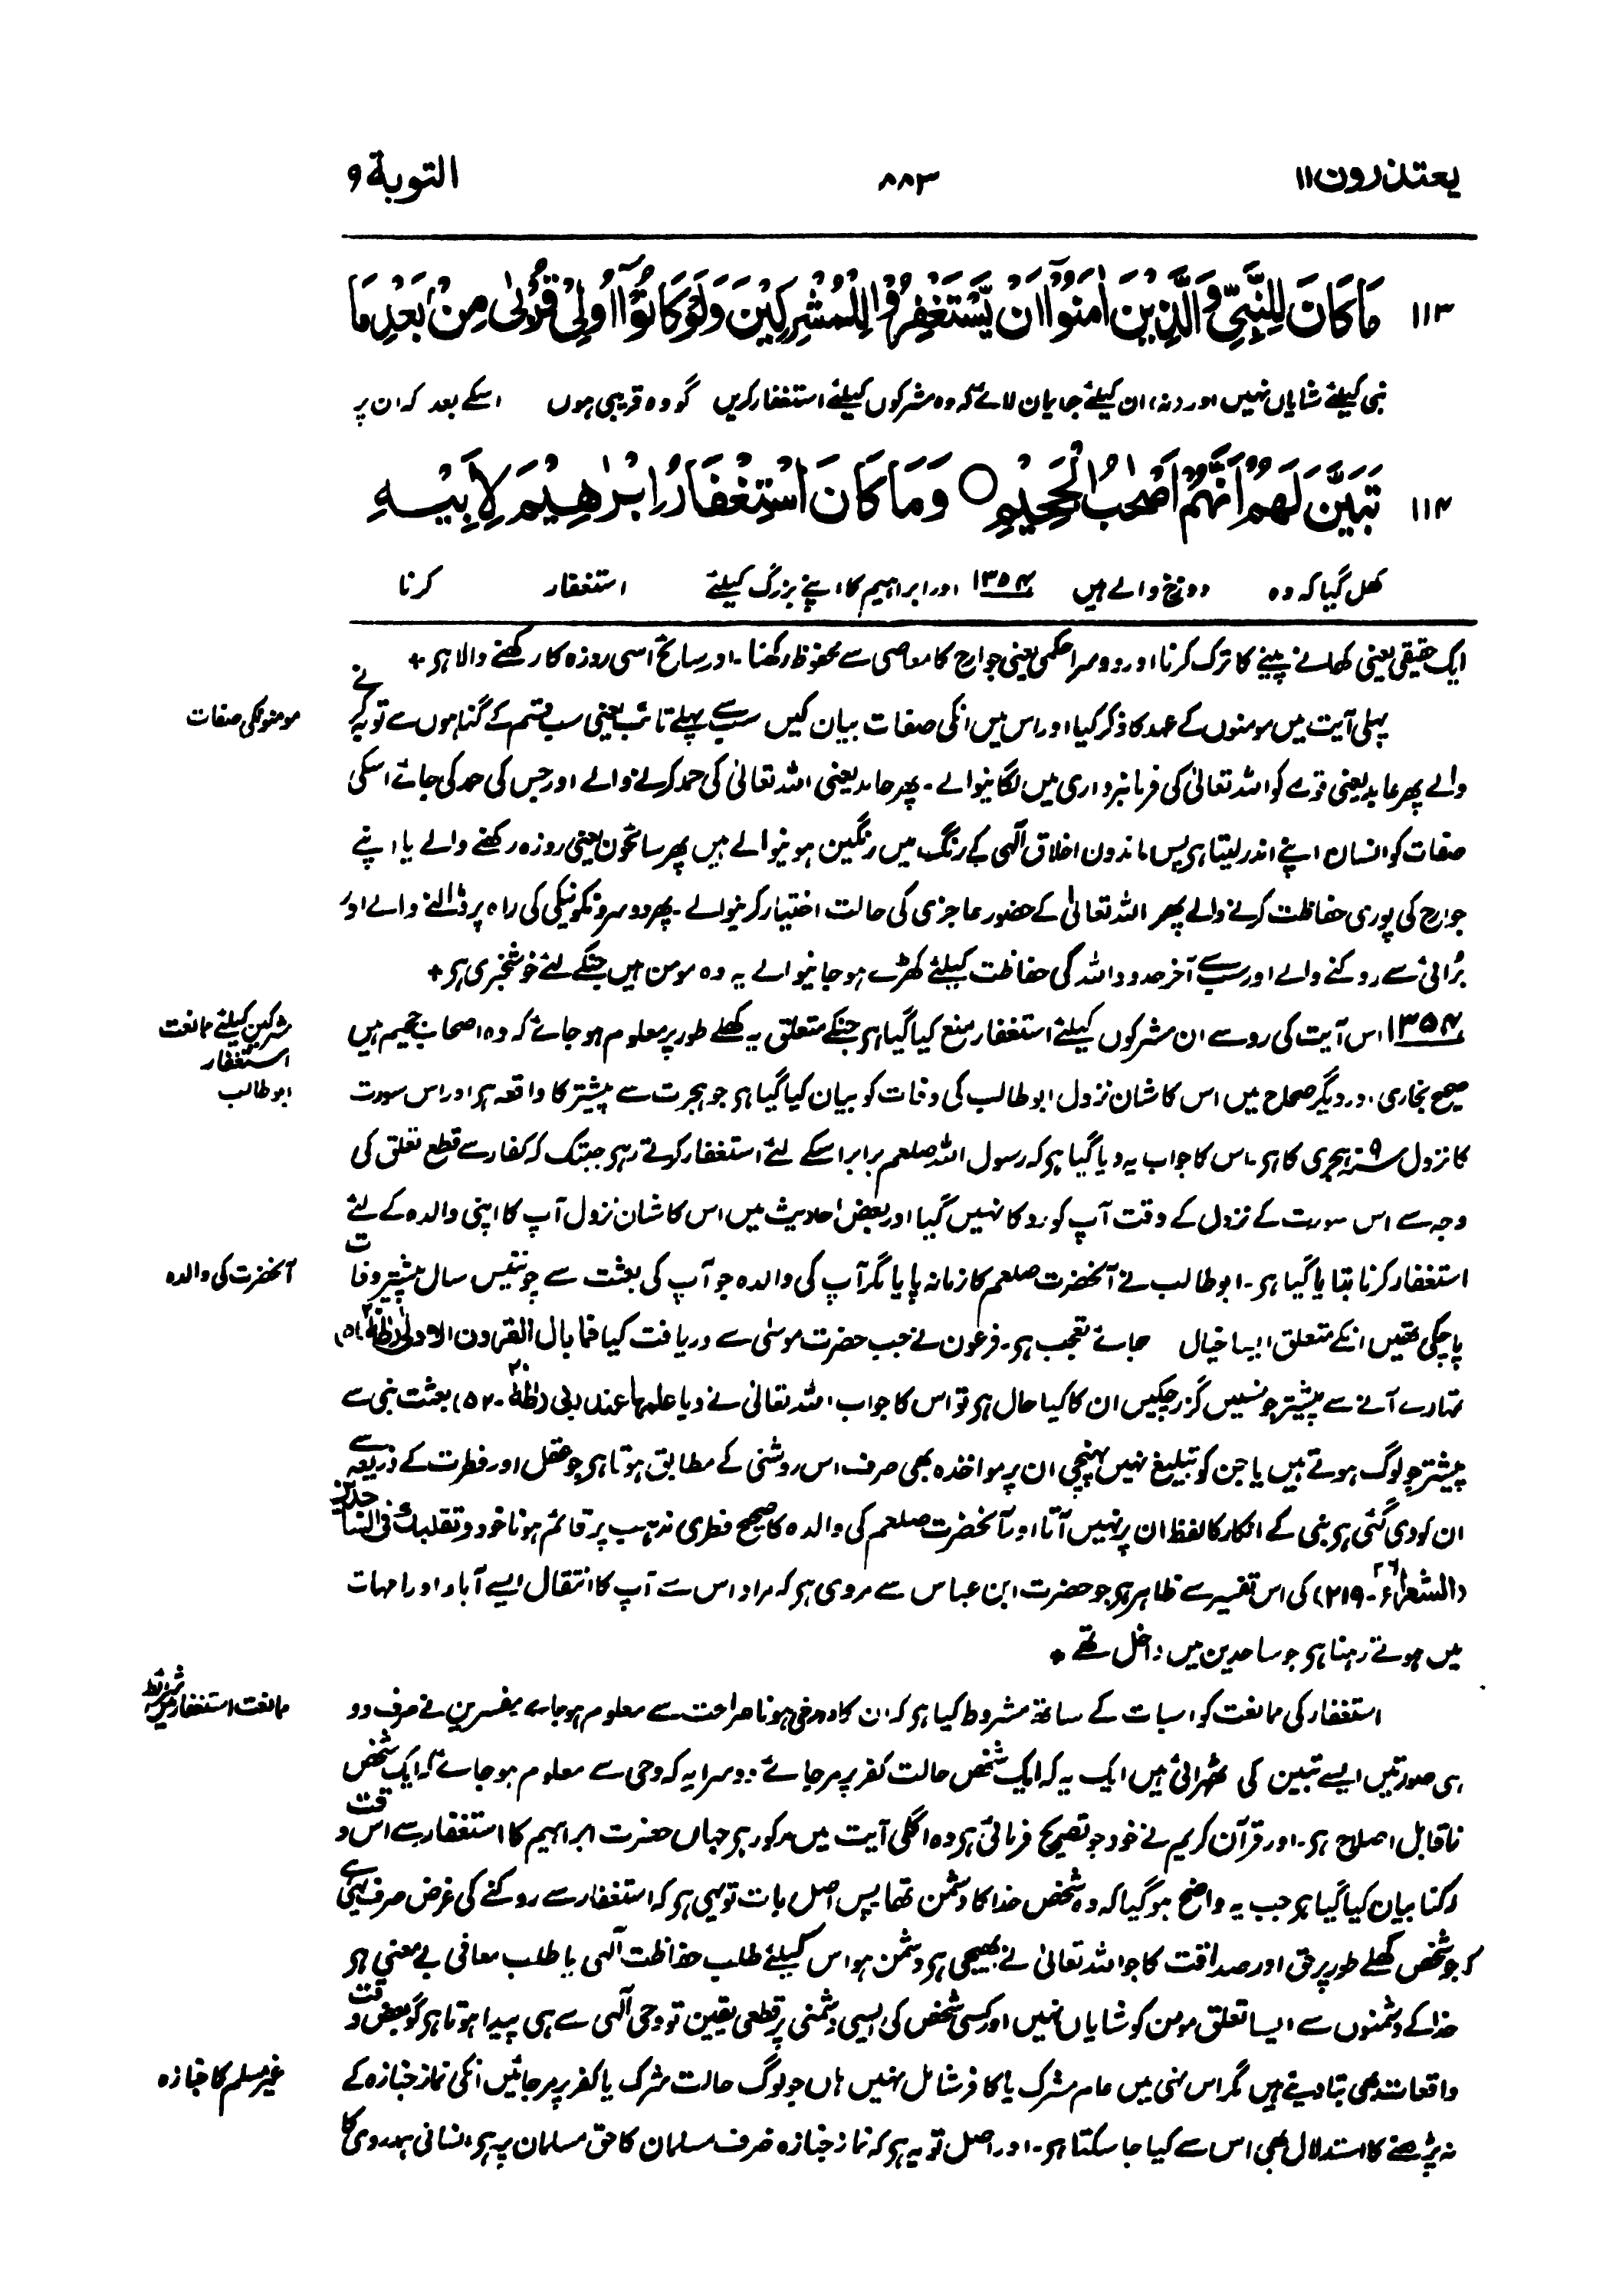 یعتذرون ۱۱
۸۸۳
التوبة ۹
۱۱۳ مَا كَانَ لِلنَّبِيِّ وَالَّذِيْنَ اٰمَنُوْٓا اَنْ يَّسْتَغْفِرُوْا لِلْمُشْرِكِيْنَ وَلَوْ كَانُوْٓا اُولِيْ قُرْبٰى مِنْۢ بَعْدِ مَا
نبی کیلئے شایاں نہیں اور (نہ) ان کیلئے جو ایمان لائے کہ وہ مشرکوں کیلئے استغفار کریں گو وہ قریبی ہوں اسکے بعد کہ ان پر
۱۱۴ تَبَيَّنَ لَهُمْ اَنَّهُمْ اَصْحٰبُ الْجَحِيْمِ ○ وَمَا كَانَ اسْتِغْفَارُ اِبْرٰهِيْمَ لِاَبِيْهِ
کھل گیا کہ وہ دوزخ والے ہیں ۱۳۵۴ اور ابراہیم کا اپنے بزرگ کیلئے استغفار کرنا
ایک حقیقی یعنی کھانے پینے کا ترک کرنا اور دوسرا حکمی یعنی جوارح کا معاصی سے محفوظ رکھنا۔ اور سائح اسی روزہ کا رکھنے والا ہو +
مومنونکی صفات
پہلی آیت میں مومنوں کے عہد کا ذکر کیا اور اس میں انکی صفات بیان کیں سب سے پہلے تائب یعنی سب قسم کے گناہوں سے توبہ کرنے
والے پھر عابد یعنی قوے کو اللہ تعالیٰ کی فرمانبرداری میں لگانیوالے۔ پھر حامد یعنی اللہ تعالیٰ کی حمد کرنے والے اور جس کی حمد کی جائے اسکی
صفات کو انسان اپنے اندر لیتا ہو پس حامدون اخلاق الٰہی کے رنگ میں رنگین ہونیوالے ہیں پھر سائحون یعنی روزہ رکھنے والے یا اپنے
جوارح کی پوری حفاظت کرنے والے پھر اللہ تعالیٰ کے حضور عاجزی کی حالت اختیار کرنیوالے۔ پھر دوسرونکو نیکی کی راہ پر ڈالنے والے اور
بُرائی سے روکنے والے اور سب سے آخر حدود اللہ کی حفاظت کیلئے کھڑے ہو جانیوالے یہ وہ مومن ہیں جنکے لئے خوشخبری ہو +
مشرکین کیلئے ممانعت استغفار
۱۳۵۴ اس آیت کی رو سے ان مشرکوں کیلئے استغفار منع کیا گیا ہو جنکے متعلق یہ کھلے طور پر معلوم ہو جائے کہ وہ اصحاب جحیم ہیں
ابو طالب
صحیح بخاری اور دیگر صحاح میں اس کا شان نزول ابو طالب کی وفات کو بیان کیا گیا ہو جو ہجرت سے پیشتر کا واقعہ ہو اور اس سورت
کا نزول ۹ سنہ ہجری کا ہو۔ اس کا جواب یہ دیا گیا ہو کہ رسول اللہ صلعم برابر اسکے لئے استغفار کرتے رہو جبتک کہ کفار سے قطع تعلق کی
وجہ سے اس سورت کے نزول کے وقت آپ کو روکا نہیں گیا اور بعض احادیث میں اس کا شان نزول آپ کا اپنی والدہ کے لئے
آنحضرت کی والدہ
استغفار کرنا بتایا گیا ہو۔ ابو طالب نے آنحضرت صلعم کا زمانہ پایا مگر آپ کی والدہ جو آپ کی بعثت سے چونتیس سال پیشتر وفات
پا چکی تھیں انکے متعلق ایسا خیال جائے تعجب ہو۔ فرعون نے جب حضرت موسٰی سے دریافت کیا فما بال القرون الاولیٰ (طٰہٰ ۲۰۔ ۵۱)
تمہارے آنے سے پیشتر جو نسلیں گزر چکیں ان کا کیا حال ہو تو اس کا جواب اللہ تعالیٰ نے دیا علمها عند ربی (طٰہٰ ۲۰۔ ۵۲) بعثت نبی سے
پیشتر جو لوگ ہوتے ہیں یا جن کو تبلیغ نہیں پہنچی ان پر مواخذہ بھی صرف اس روشنی کے مطابق ہوتا ہو جو عقل اور فطرت کے ذریعہ سے
ان کو دی گئی ہو نبی کے انکار کا لفظ ان پر نہیں آتا اور آنحضرت صلعم کی والدہ کا صحیح فطری مذہب پر قائم ہونا خود و تقلبك فی الساجدین
(الشعراء ۲۶۔ ۲۱۹) کی اس تفسیر سے ظاہر ہو جو حضرت ابن عباس سے مروی ہو کہ مراد اس سے آپ کا انتقال ایسے آباء اور امہات
میں ہوتے رہنا ہو جو ساجدین میں داخل تھے +
ممانعت استغفار میں شرط
استغفار کی ممانعت کو اس بات کے ساتھ مشروط کیا ہو کہ ان کا دوزخی ہونا صراحت سے معلوم ہو جاے مفسرین نے صرف دو
ہی صورتیں ایسے تبین کی ٹھہرائی ہیں ایک یہ کہ ایک شخص حالت کفر پر مر جائے۔ دوسرا یہ کہ وحی سے معلوم ہو جائے کہ ایک شخص
ناقابل اصلاح ہو۔ اور قرآن کریم نے خود جو تصریح فرمائی ہو وہ اگلی آیت میں مذکور ہو جہاں حضرت ابراہیم کا استغفار سے اس وقت
رکنا بیان کیا گیا ہو جب یہ واضح ہو گیا کہ وہ شخص خدا کا دشمن تھا پس اصل بات تو یہی ہو کہ استغفار سے روکنے کی غرض صرف یہی ہے
کہ جو شخص کھلے طور پر حق اور صداقت کا جو اللہ تعالیٰ نے بھیجی ہو دشمن ہو اس کیلئے طلب حفاظت الٰہی یا طلب معافی بے معنی ہو
خدا کے دشمنوں سے ایسا تعلق مومن کو شایاں نہیں اور کسی شخص کی ایسی دشمنی پر قطعی یقین تو وحی الٰہی سے ہی پیدا ہوتا ہو گو بعض وقت
غیر مسلم کا جنازہ
واقعات بھی بتا دیتے ہیں مگر اس نہی میں عام مشرک یا کافر شامل نہیں ہاں جو لوگ حالت شرک یا کفر پر مر جائیں انکی نماز جنازہ کے
نہ پڑھنے کا استدلال بھی اس سے کیا جا سکتا ہو۔ اور اصل تو یہ ہو کہ نماز جنازہ صرف مسلمان کا حق مسلمان پر ہو، انسانی ہمدردی کا